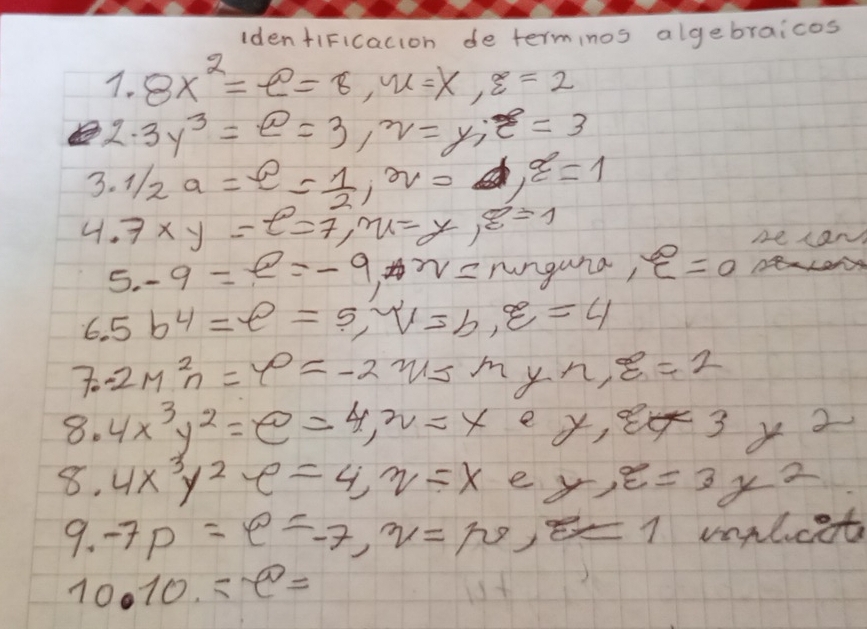 Identificacion de terminos algebraicos
1. 8x² = C = 8, v = x, E = 2
2. 3y³ = C = 3, v = y, E = 3
3. 1/2 a = C = 1/2, v = , E = 1
4. 7xy = C = 7, v = y, E = 1
5. -9 = C = -9, v = ninguna, E = 0 se
6. 5 b4 = C = 5, v = b, E = 4
7. -2m²n = C = -2 v = m y n, E = 2
8. 4x³y² = C = 4, v = x e y, E 3 y 2
8. 4x³y² C = 4, v = x e y, E = 3 y 2
9. -7p = C = -7, v = p, E = 1 implicito
10. 10. = C =